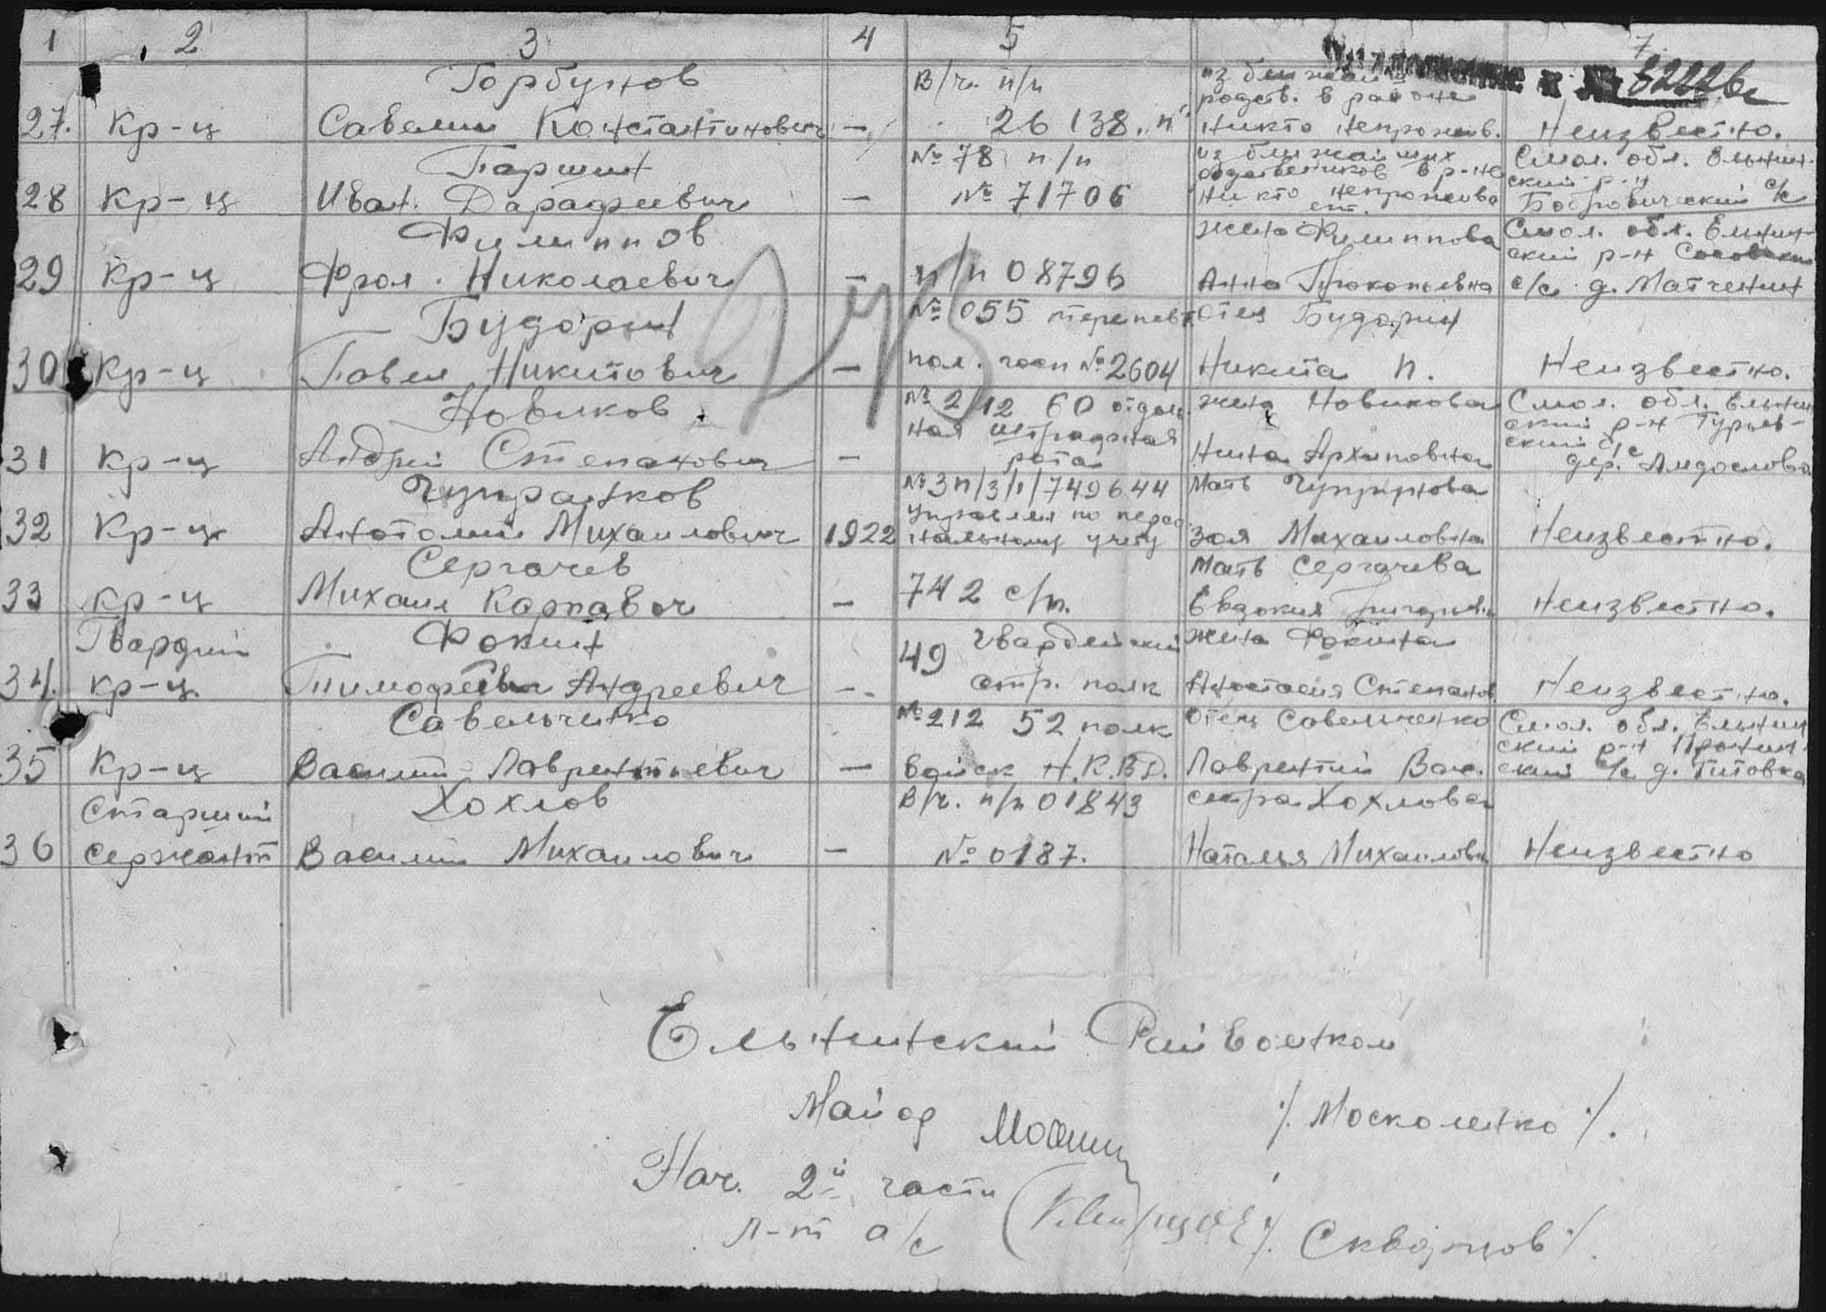 1 2 3 4 5 7
Горбунов В/ч. п/п из ближай
родств. в районе
27. Кр-ц Савелий Константинович — 26138 "п" никто непрожив. Неизвестно.
Паршин № 78 п/п из ближайших Смол. обл. Ельнин-
родственников в р-не ский р-н
28 Кр-ц Иван Дарафеевич — № 71706 никто непрожива Бобровический с/с
ет.
Филиппов жена Филиппова Смол. обл. Ельнин-
ский р-н
29 Кр-ц Фрол Николаевич — п/п 08796 Анна Прокопьевна с/с д. Матченин
Бударин № 055 отец Бударин
30 Кр-ц Павел Никитович — пол. госп № 2604 Никита П. Неизвестно.
Новиков № 212 60 отдель жена Новикова Смол. обл. Ельнин
ная штрафная ский р-н Гурьев-
31 Кр-ц Андрей Степанович — рота Нина Архиповна ский с/с
дер.
Чупранков № 3п/3/1/749644 мать
32 Кр-ц Анатолий Михайлович 1922 управлен по персо
нальному учету Зоя Михайловна Неизвестно.
Сергачев мать Сергачева
33 Кр-ц Михаил Карпович — 742 с/п. Евдокия Неизвестно.
Гвардий Фокин 49 гвардейский жена Фокина
34. кр-ц. Тимофей Андреевич — стр. полк Анастасия Степанов Неизвестно.
Савельченко № 212 52 полк отец Савельченко Смол. обл. Ельнин
ский р-н Пронин-
35 Кр-ц Василий Лаврентьевич — войск Н.К.В.Д. Лаврентий Вас. ский с/с д. Титовка
Старший Хохлов В/ч. п/п 01843 сестра Хохлова
36 сержант Василий Михайлович — № 0187. Наталья Михайловн Неизвестно
Ельнинский Райвоенком
Майор /. Москоленко ./.
Нач. 2й части
л-т а/с /. Скворцов ./.